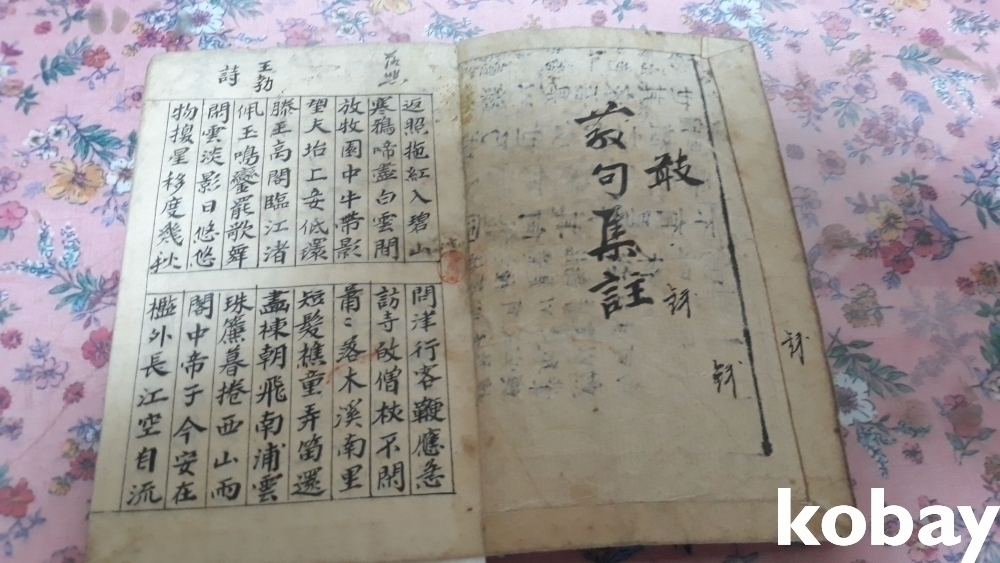 句集註
敢
落照
返照拖紅入碧山 問津行客鞭應急
寒鴉啼盡白雲間 訪寺敀僧杖不閑
放牧園中牛帶影 蕭〻落木溪南里
望夫坮上妾低環 短髮樵童弄笛還
王勃
詩
滕王高閣臨江渚 畵棟朝飛南浦雲
佩玉鳴鑾罷歌舞 珠簾暮捲西山雨
閑雲淡影日悠悠 閣中帝子今安在
物換星移度幾秋 檻外長江空自流
kobay